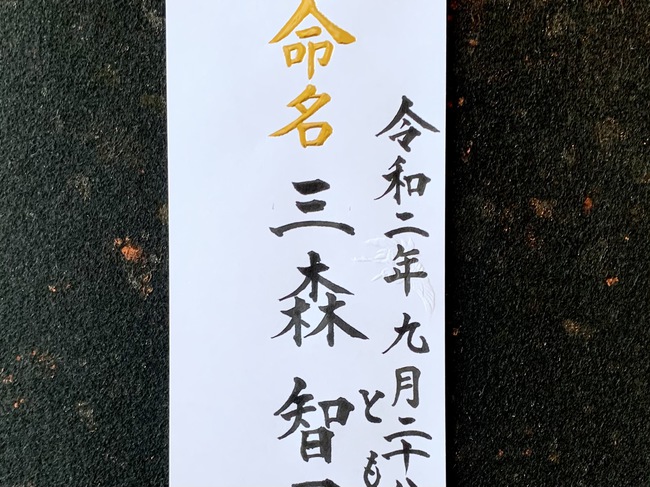 令和二年九月二十
とも
命名 三森 智